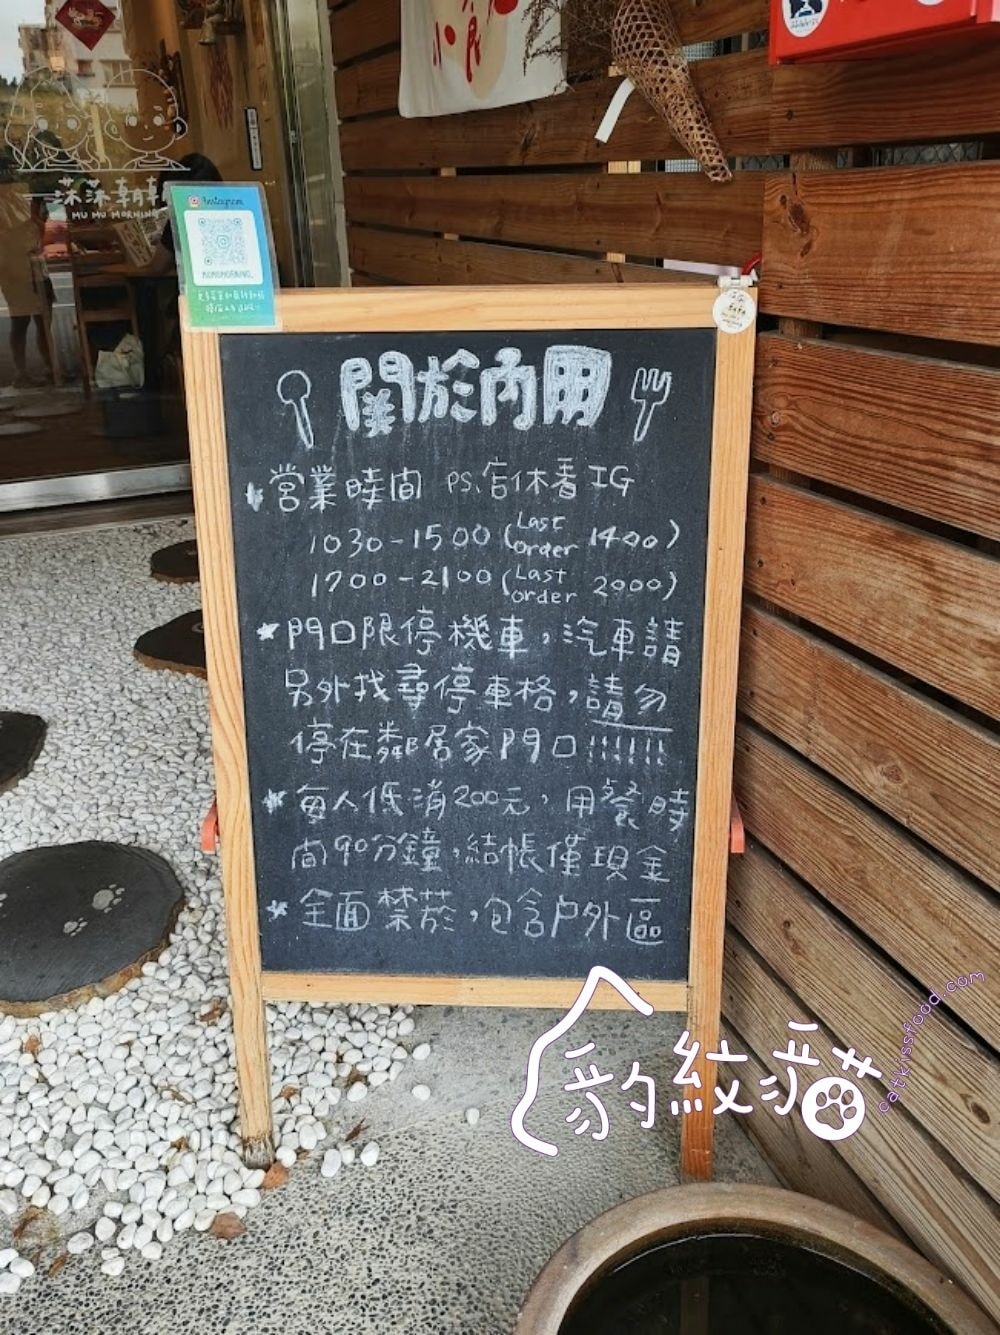 小食
沐沐朝朝
MU MU MORNING
Instagram
MUMUMORNING_
關於內用
營業時間 PS.店休看IG
1030-1500(Last order 1400)
1700-2100(Last order 2000)
門口限停機車，汽車請
另外找尋停車格，請勿
停在鄰居家門口!!!!!!
每人低消200元，用餐時
間90分鐘，結帳僅現金
全面禁菸，包含戶外區
豹紋貓
catkissfood.com